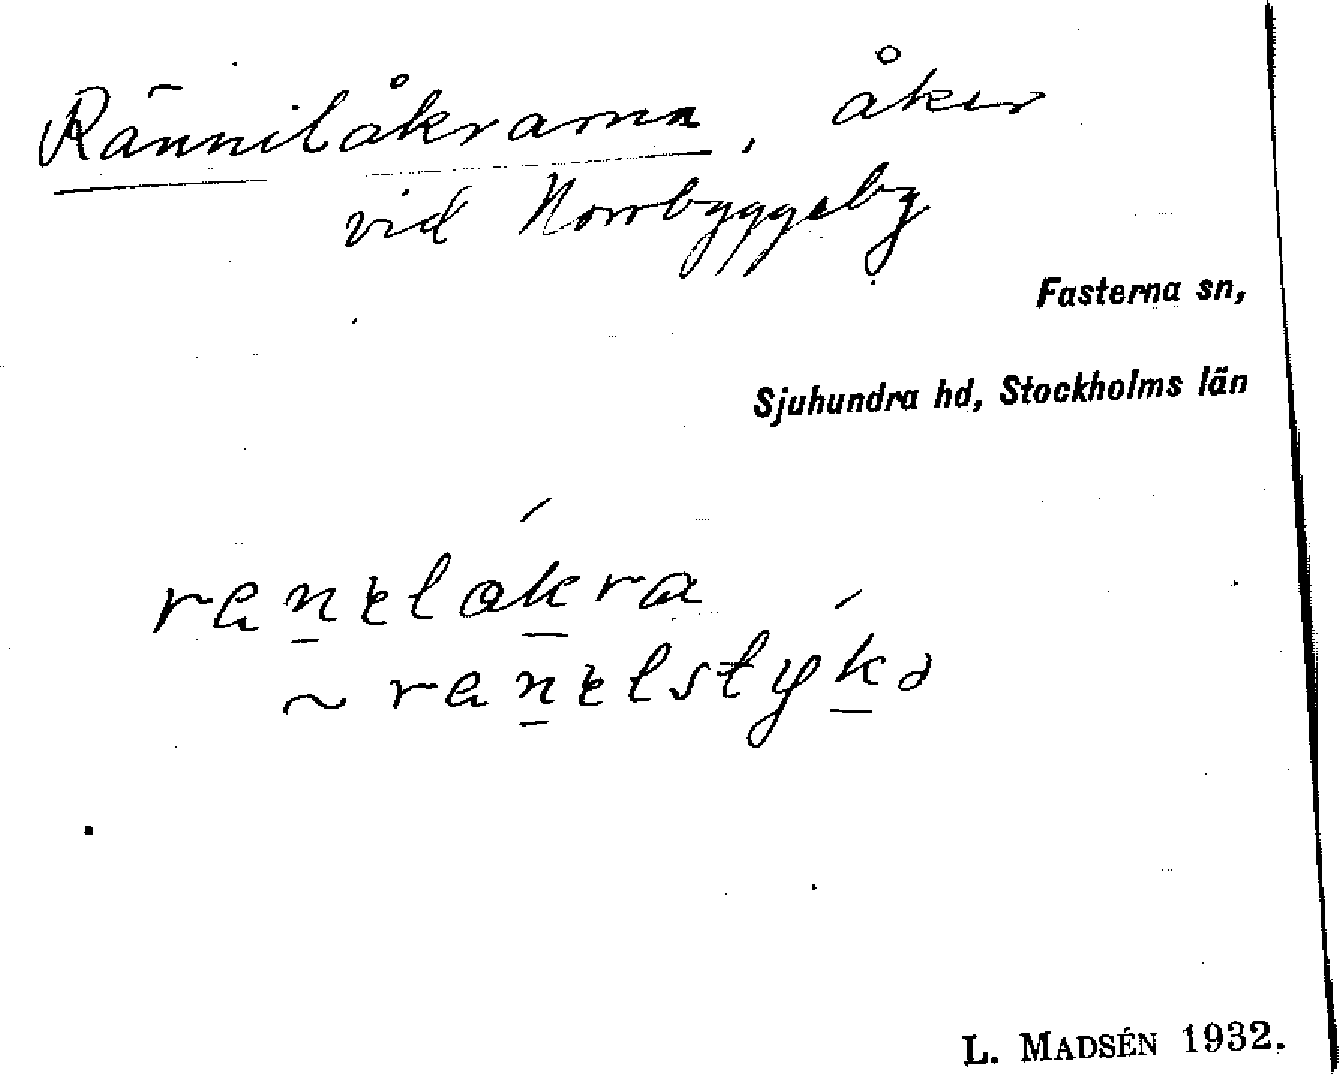 Rännilåkrarna, åker
vid Norrbyggeby
Fasterna sn,
Sjuhundra hd, Stockholms län
L. MADSÉN 1932.